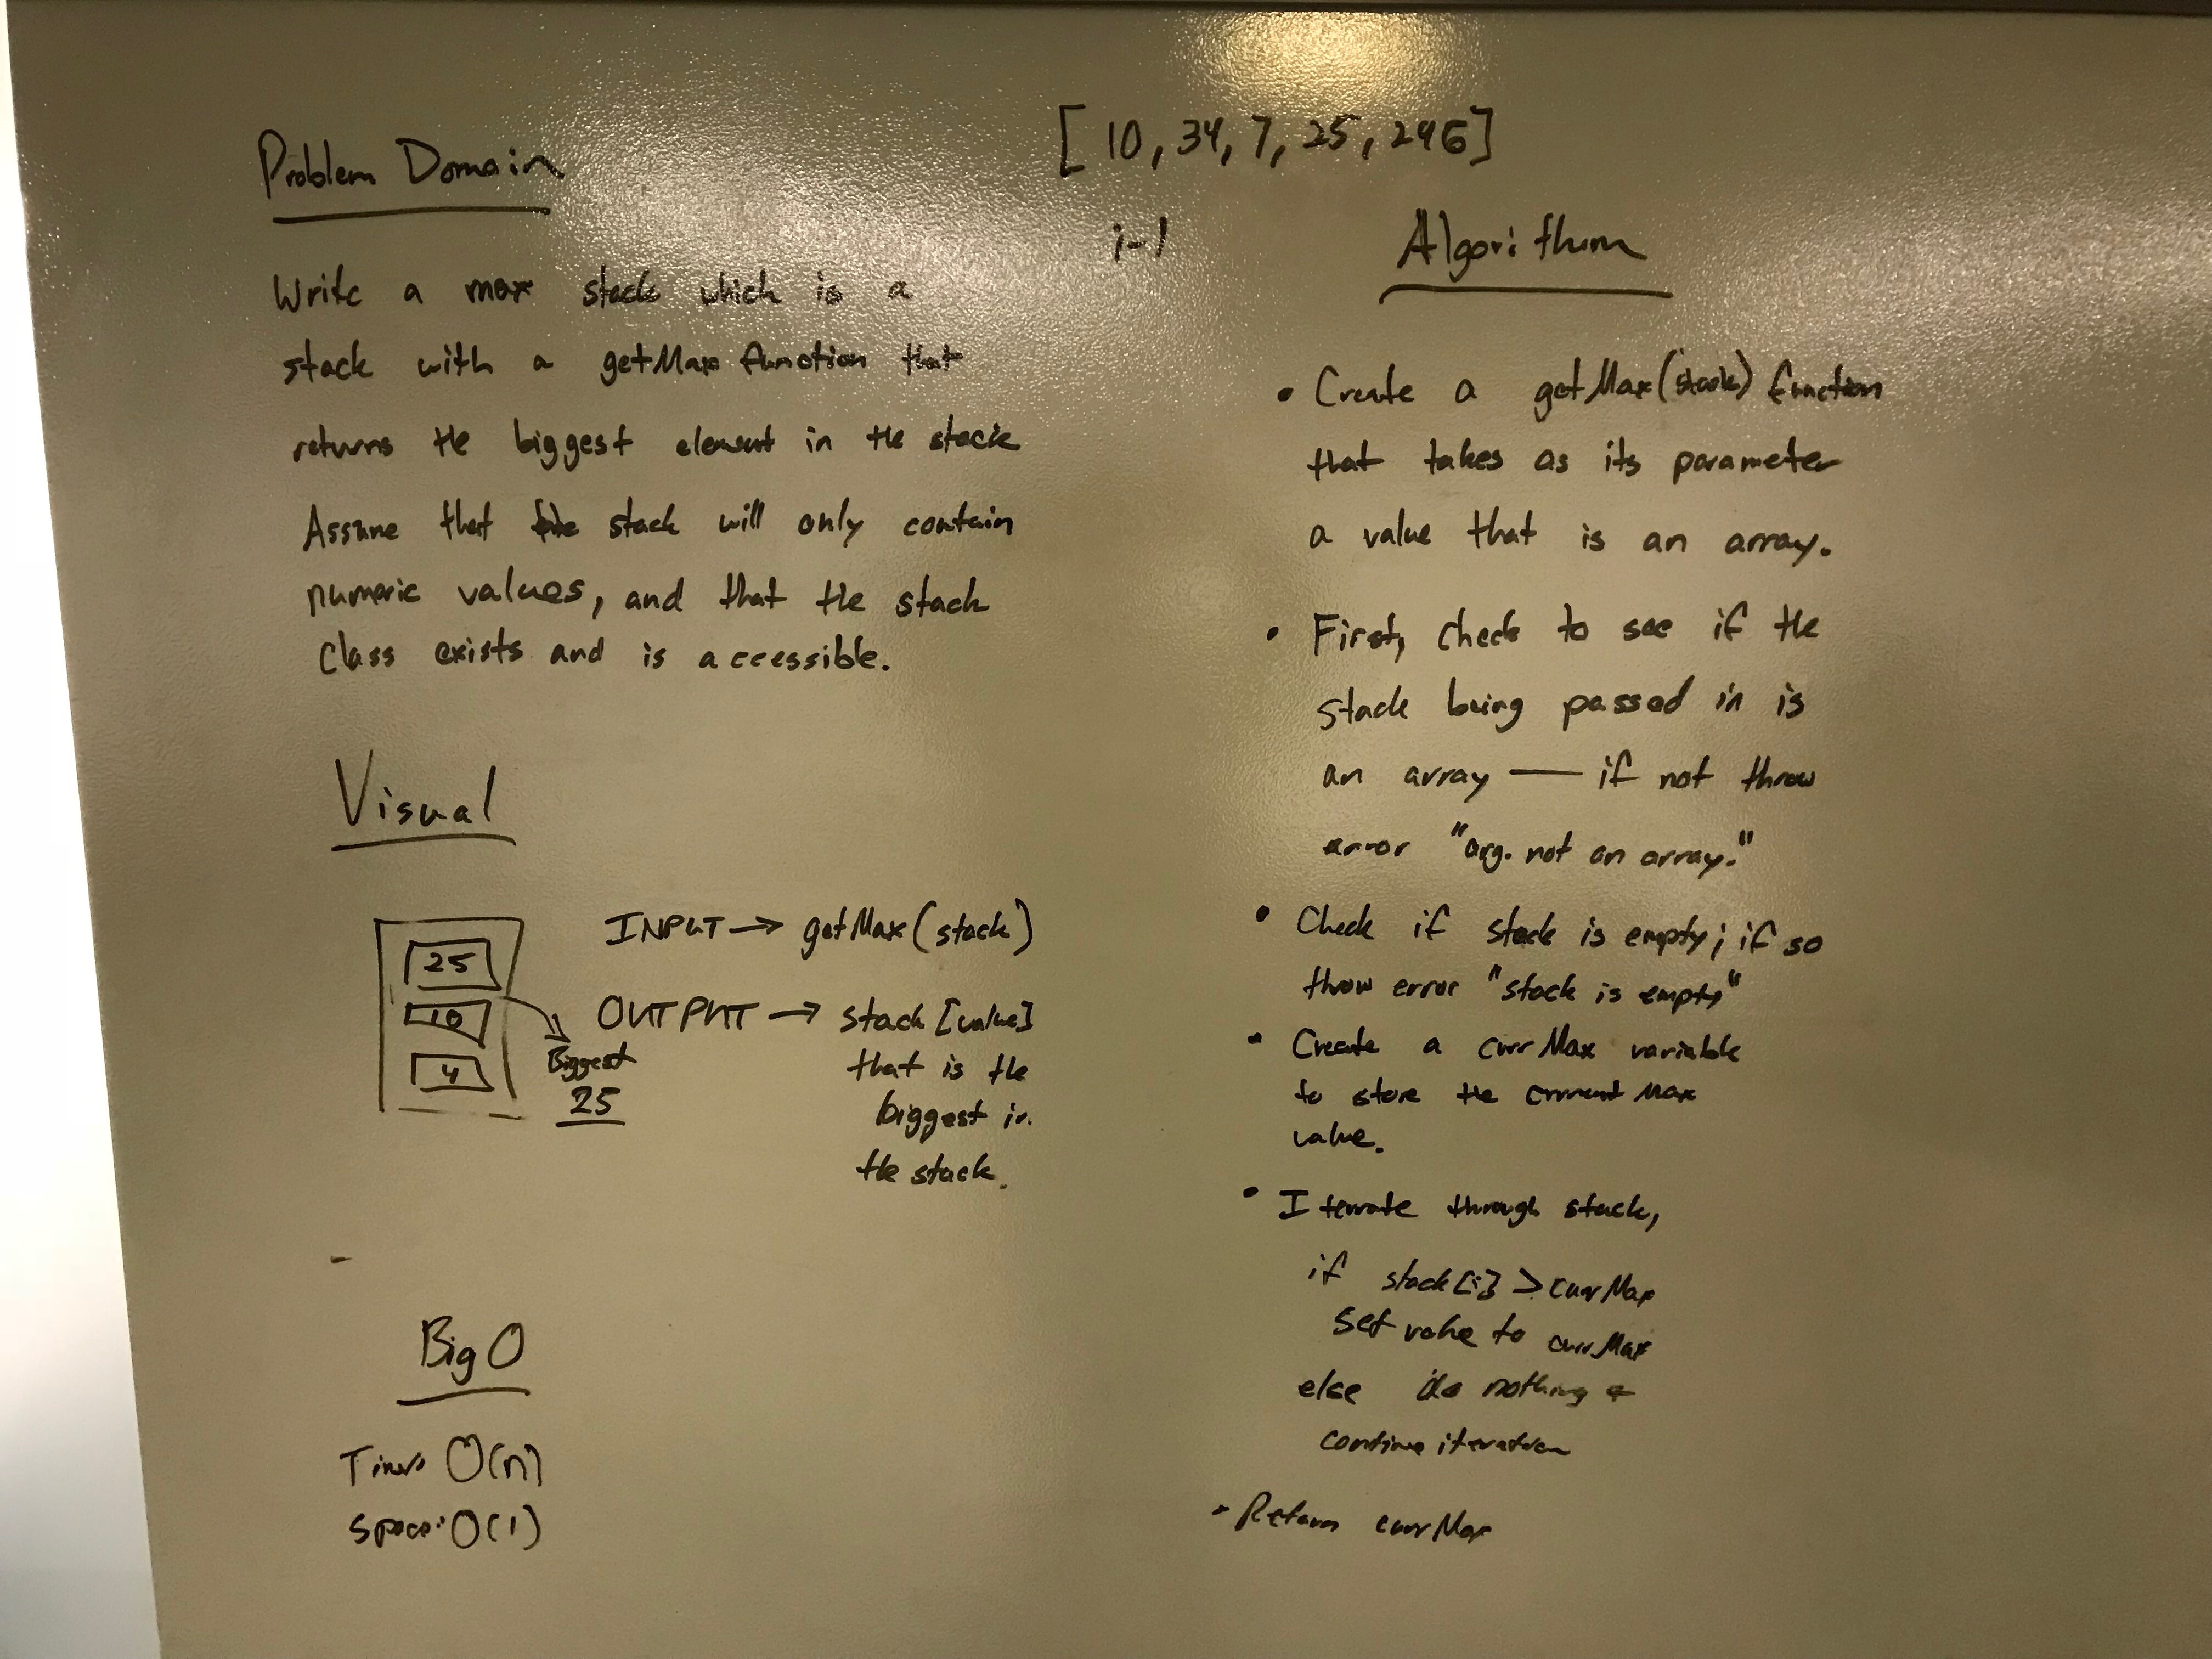 Problem Domain
Write a max stack which is a
stack with a getMax function that
returns the biggest element in the stack
Assume that the stack will only contain
numeric values, and that the stack
Class exists and is accessible.
Visual
25
10
4
Biggest
25
INPUT → getMax(stack)
OUTPUT → stack[value]
that is the
biggest in
the stack.
Big O
Time: O(n)
Space: O(1)
[10, 34, 7, 25, 246]
i-1
Algorithum
• Create a getMax(stack) function
that takes as its parameter
a value that is an array.
• First, check to see if the
stack being passed in is
an array — if not throw
error "arg. not an array."
• Check if stack is empty; if so
throw error "stack is empty"
• Create a currMax variable
to store the current max
value.
• Iterate through stack,
if stack[i] > currMax
set value to currMax
else do nothing &
continue iteration
• Return currMax